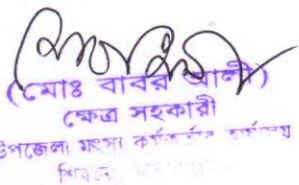 (মোঃ বাবর আলী)
ক্ষেত্র সহকারী
উপজেলা মৎস্য কর্মকর্তার কার্যালয়